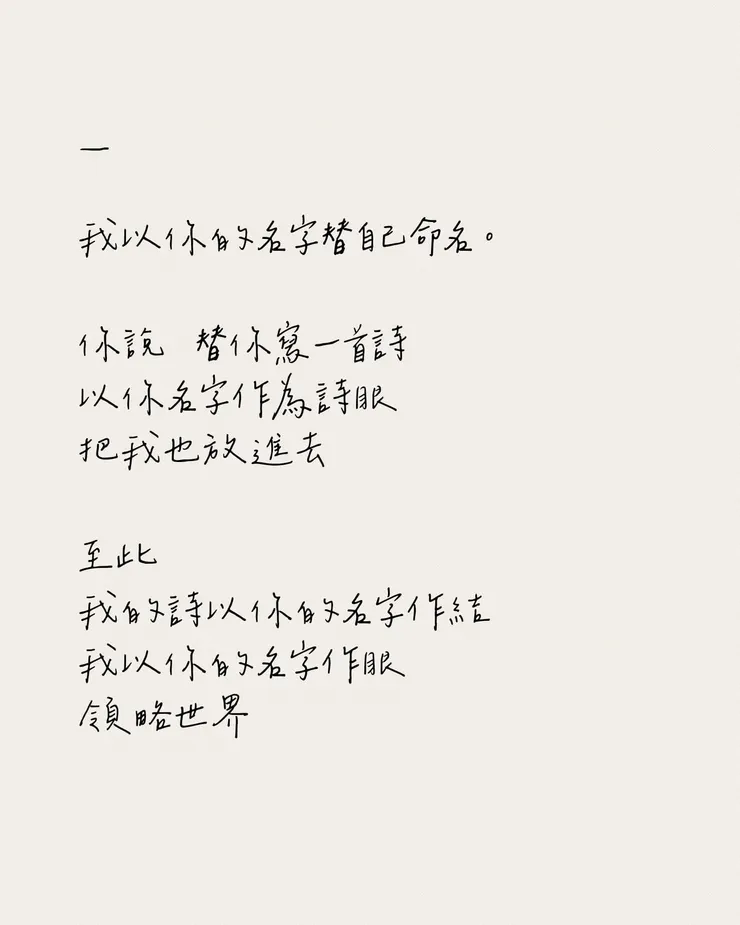 一
我以你的名字替自己命名。
你說　替你寫一首詩
以你名字作為詩眼
把我也放進去
至此
我的詩以你的名字作結
我以你的名字作眼
領略世界